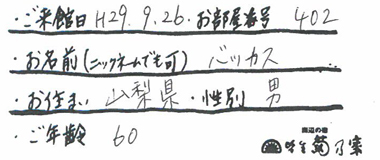 ・ご来館日 H29.9.26.お部屋番号 402
・お名前(ニックネームでも可) バッカス
・お住まい 山梨県・性別 男
・ご年齢 60
渡辺の宿